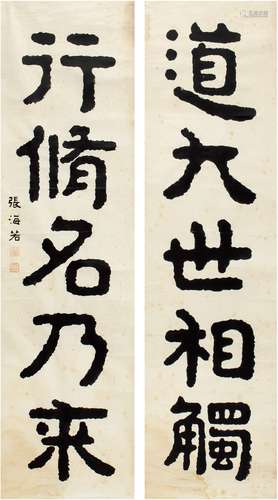 道大世相觸
行脩名乃來
張海若